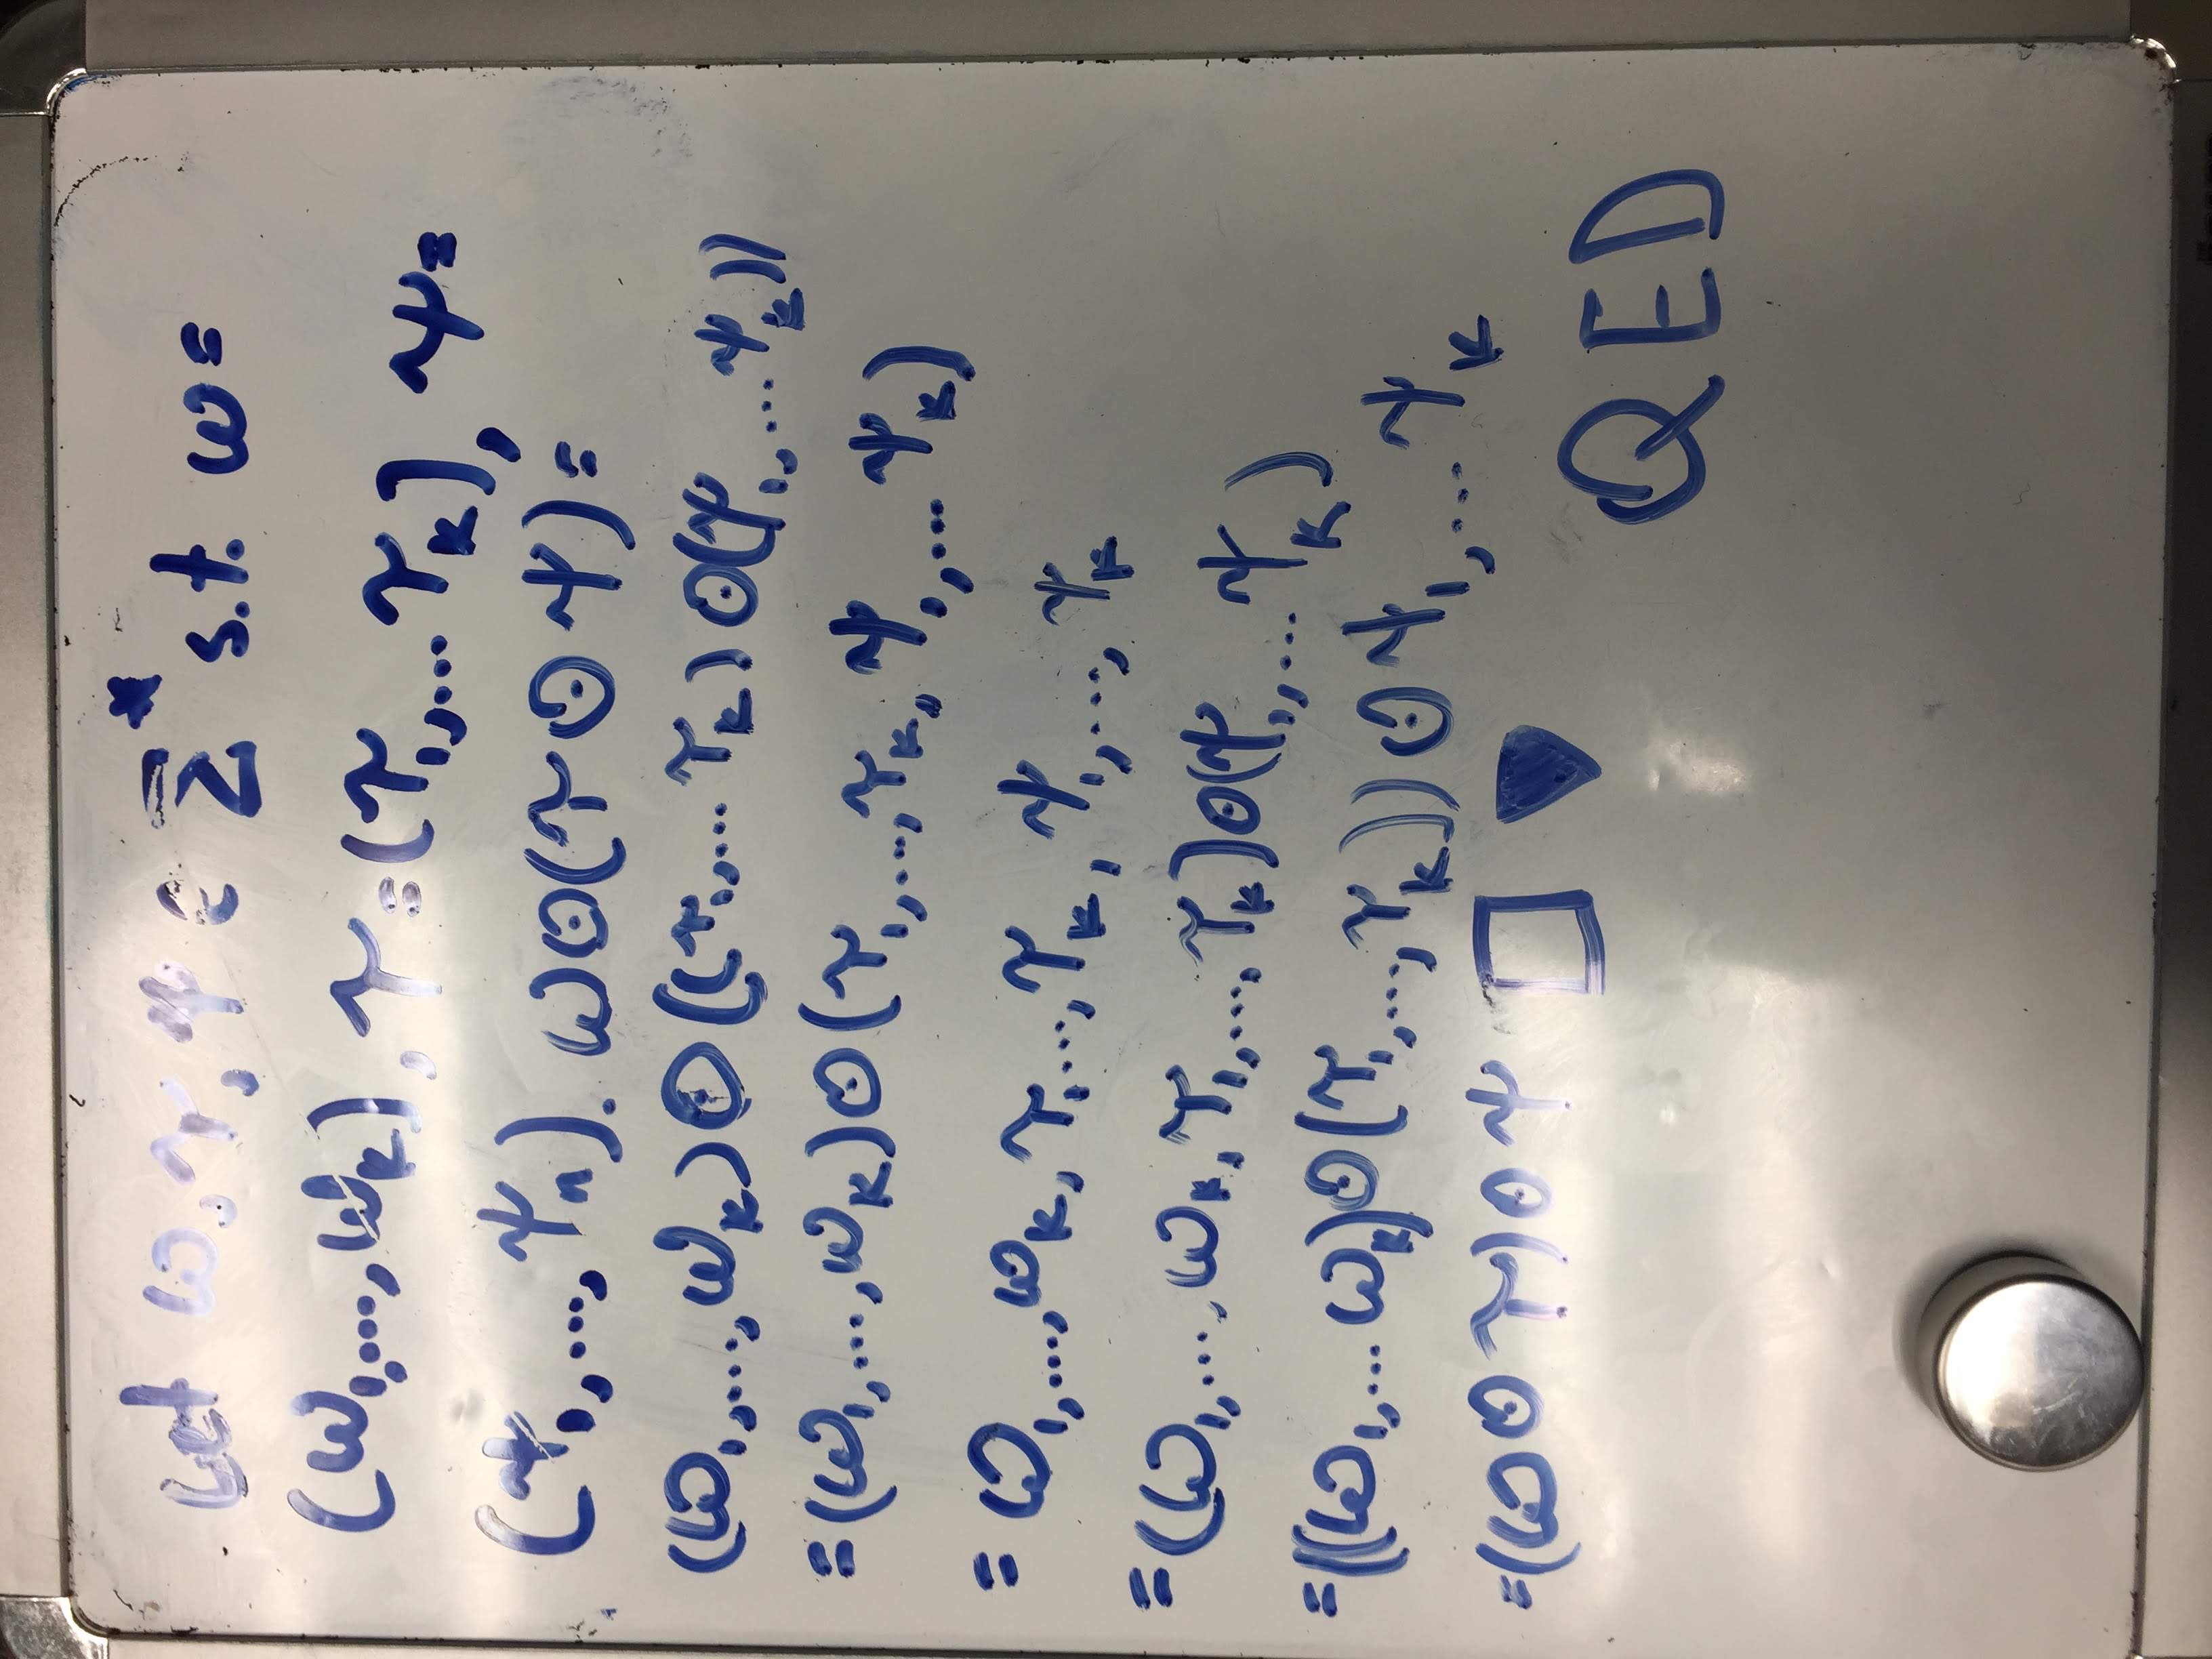 Let ω, τ, ψ ∈ Σ* s.t. ω=
(ω₁,...,ωₖ), τ=(τ₁,... τₖ), ψ=
(ψ₁,..., ψₙ). ω⊙(τ⊙ψ)=
(ω₁,..., ωₖ)⊙((τ₁,... τₖ)⊙(ψ₁,... ψₖ))
=(ω₁,...,ωₖ)⊙(τ₁,...,τₖ, ψ₁,... ψₖ)
= ω₁,...,ωₖ, τ₁...,τₖ, ψ₁,..., ψₖ
=(ω₁,..., ωₖ, τ₁,..., τₖ)⊙(ψ₁,... ψₖ)
=((ω₁,... ωₖ)⊙(τ₁,...,τₖ))⊙ψ₁,... ψₖ
=(ω⊙τ)⊙ψ □ ▼
QED